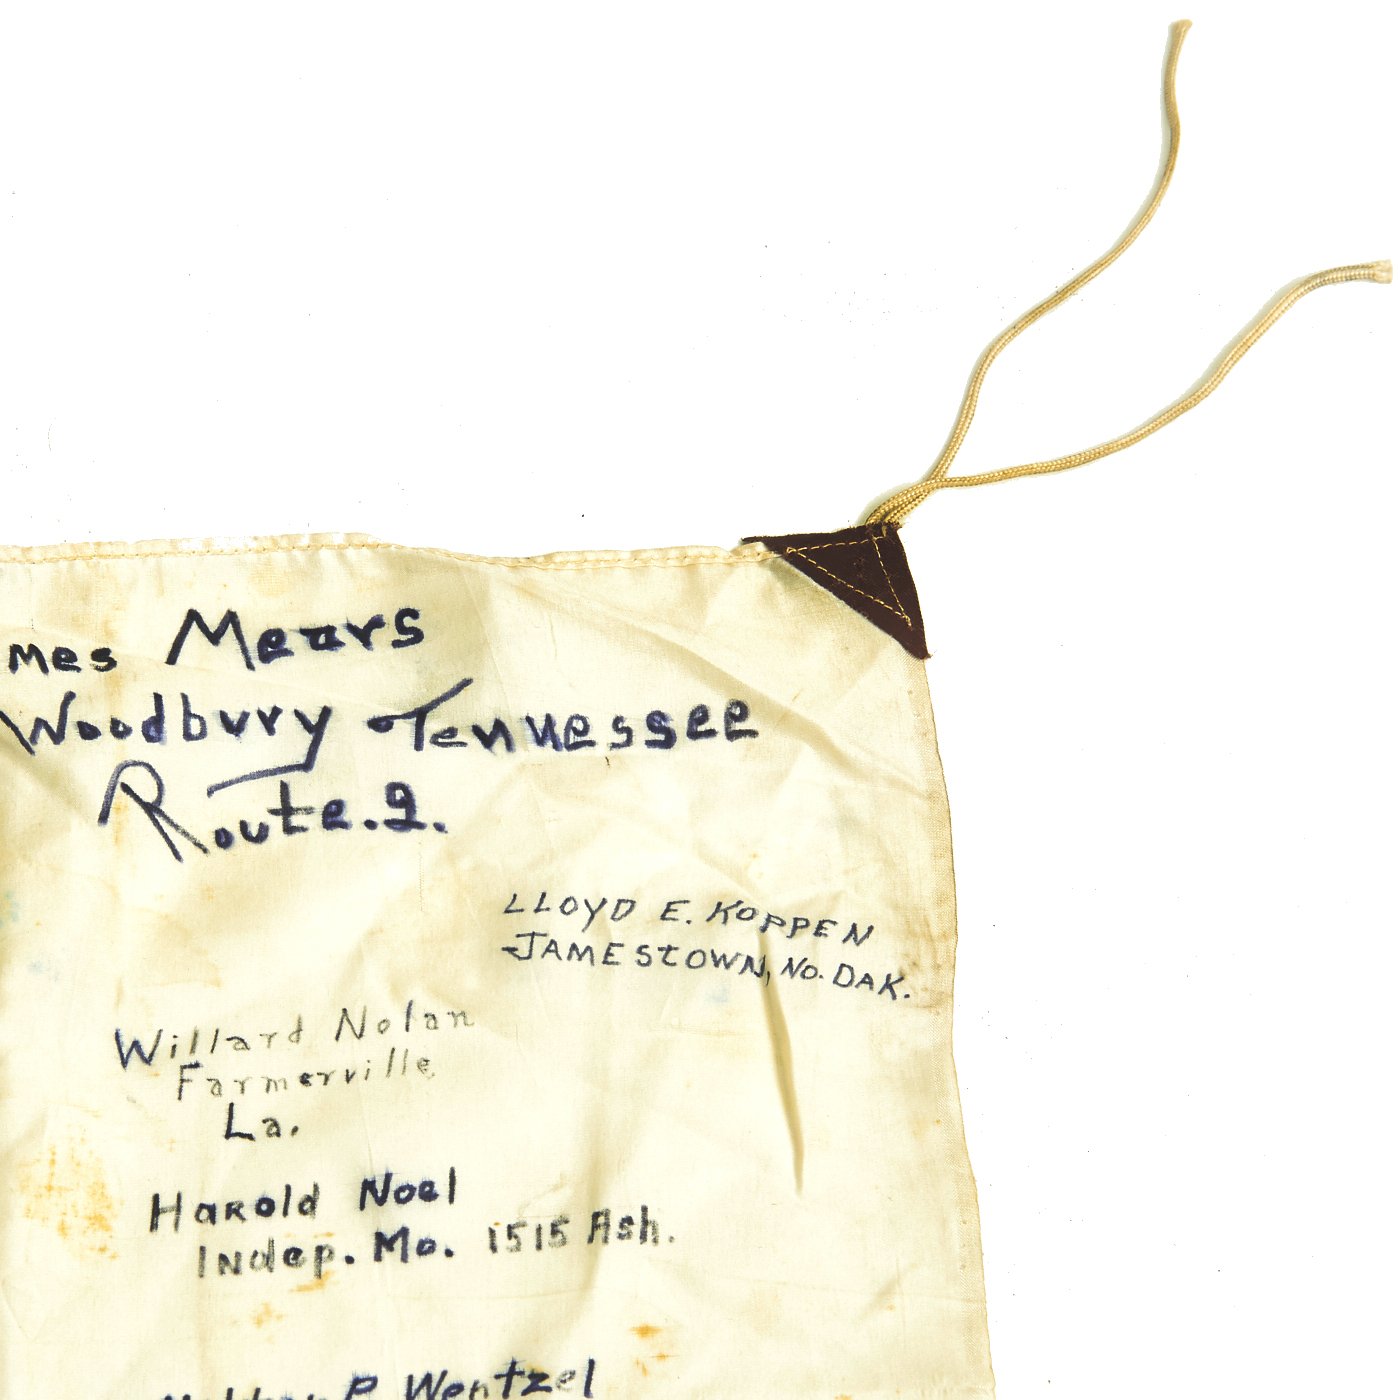 mes Mears
Woodbury Tennessee
Route.2.
LLOYD E. KOPPEN
JAMESTOWN, NO. DAK.
Willard Nolan
Farmerville
La.
Harold Noel
Indep. Mo. 1515 Ash.
P Wentzel